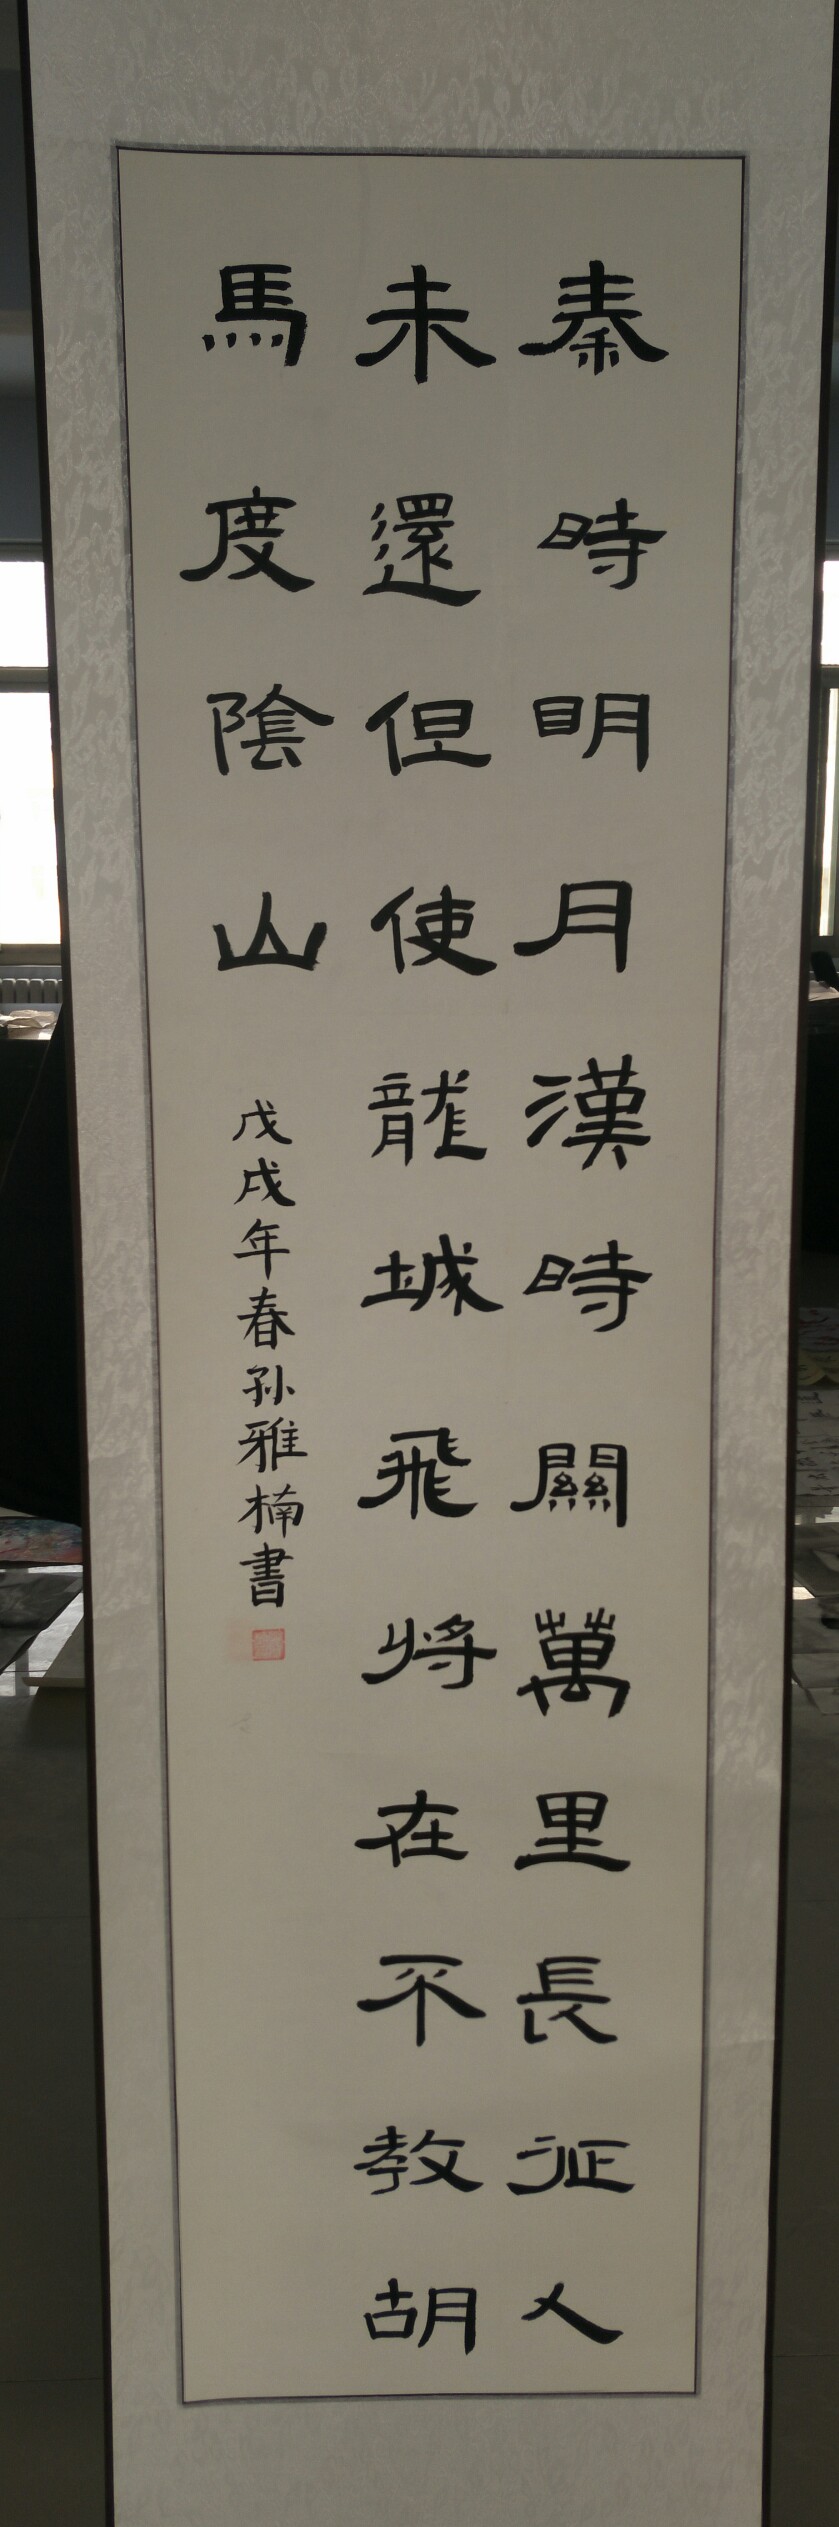 秦時明月漢時關萬里長征人
未還但使龍城飛將在不教胡
馬度陰山
戊戌年春孙雅楠書